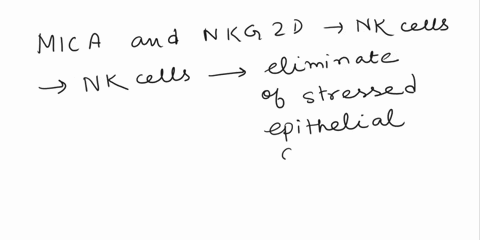 MICA and NKG2D → NK cells
→ NK cells → eliminate
of stressed
epithelial
c